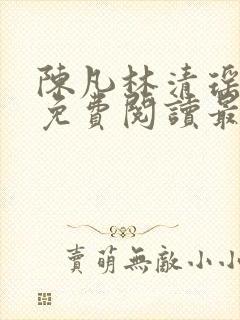 陳凡林清瑤
免費閱讀最
賣萌無敵小小